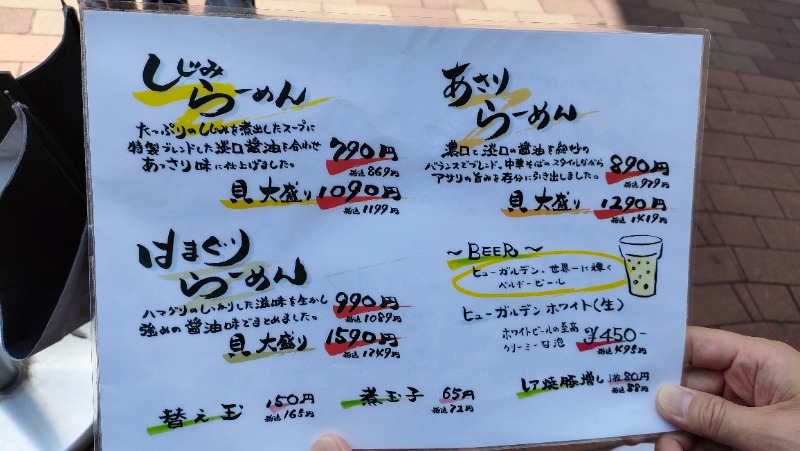 しじみ
らーめん
たっぷりのしじみを煮出したスープに
特製ブレンドした淡口醤油を合わせ
あっさり味に仕上げました。
790円
税込869円
貝大盛り 1090円
税込1199円
あさり
らーめん
濃口と淡口の醤油を絶妙の
バランスでブレンド。中華そばのスタイルながら
アサリの旨みを存分に引き出しました。
890円
税込979円
貝大盛り 1290円
税込1419円
はまぐり
らーめん
ハマグリのしっかりした滋味を生かし
強めの醤油味でまとめました。
990円
税込1089円
貝大盛り 1590円
税込1749円
～BEER～
ヒューガルデン、世界一に輝く
ベルギービール
ヒューガルデンホワイト(生)
ホワイトビールの至高
クリーミーな泡
¥450-
税込495円
替え玉 150円
税込165円
煮玉子 65円
税込72円
レア焼豚増し 1枚80円
税込88円